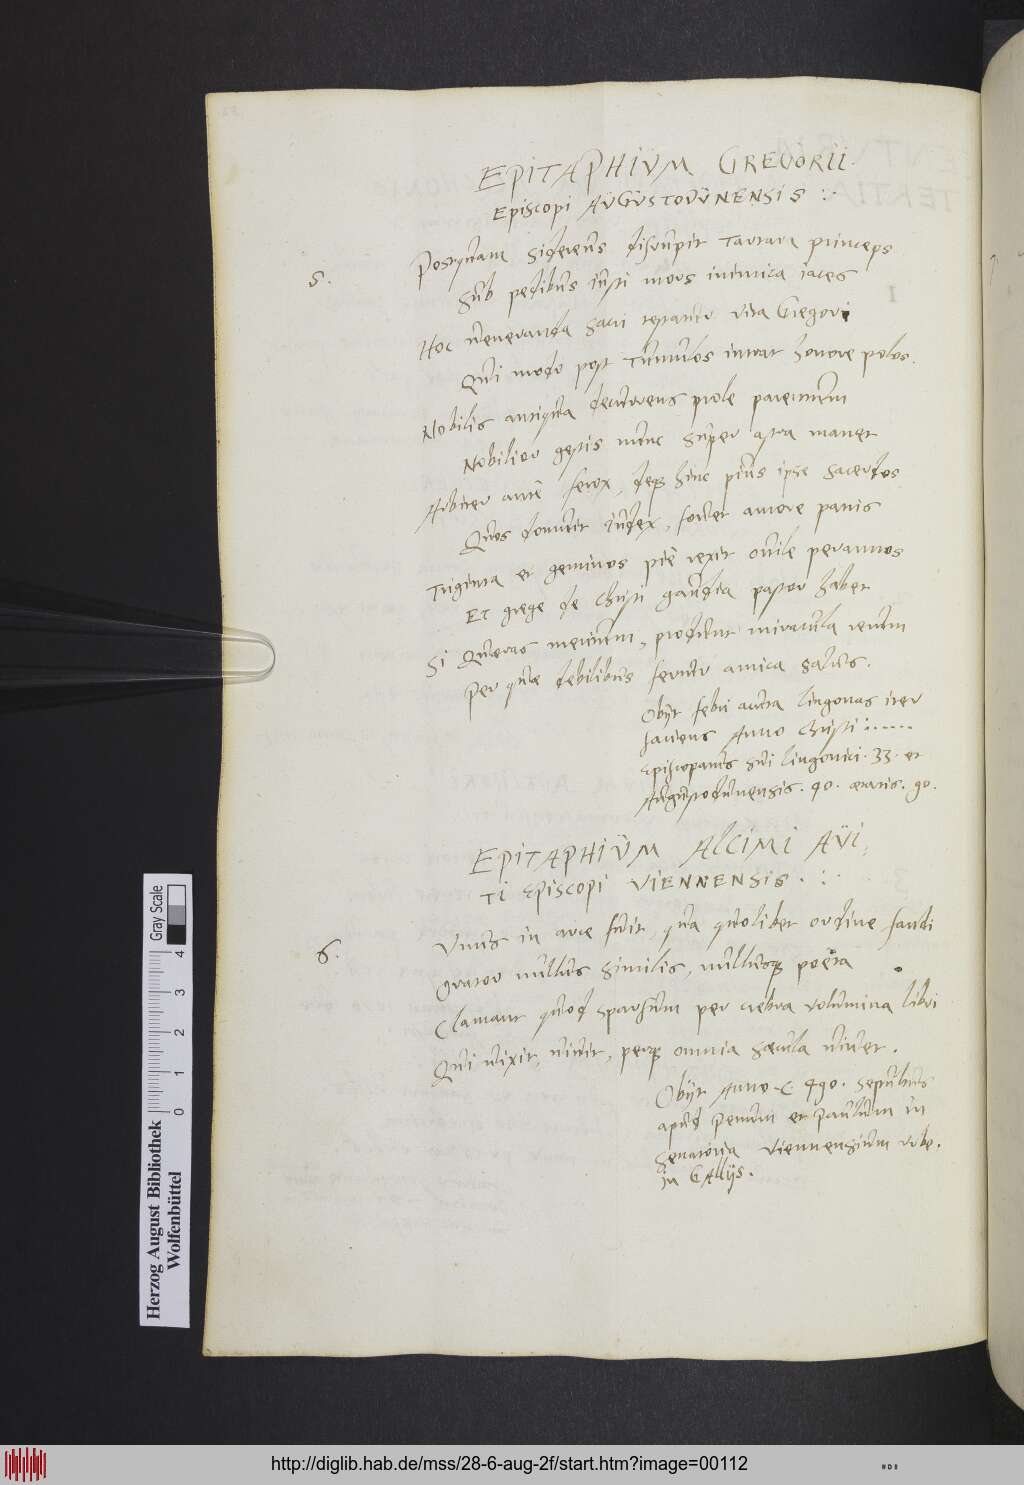 EPITAPHIUM GREGORII
EPISCOPI AUGUSTODUNENSIS :·
5.
Postquam sidereus disrupit Tartara princeps
Sub pedibus iusti mors inimica iaces
Hoc veneranda sacri testantur vita Gregori
Qui modo post Tumulos intrat honore polos.
Nobilis antiqua decurrens prole parentum
Nobilior gestis nunc super astra manet
Arbiter antè ferox, deq3 hinc pius ipse sacerdos
Quos domuit iudex, fovet amore patris
Triginta et geminos piè rexit ovile per annos
Et grege de Christi gaudia pastor habet
Si Quaeras meritum, produnt miracula rerum
Per quae debilibus fertur amica salus.
Obijt febri acuta lingonas iter
faciens Anno Christi :·····
Episcopatus sui lingonici . 33 . et
Augustodunensis . 40 . aetatis . 90 .
EPITAPHIUM ALCIMI AVI,
TI EPISCOPI VIENNENSIS . :·
6.
Unus in arce fuit, qua quolibet ordine fandi
Orator nullus similis, nullusq3 poëta
Clamant quod sparsum per crebra volumina libri
Qui vixit, vivit, perq3 omnia saecula vivet .
Obijt Anno C. 490 . sepultus
apud Petrum et Paulum in
Senatoria Viennensium urbe .
in GAllijs .
Herzog August Bibliothek
Wolfenbüttel
0 1 2 3 4
Gray Scale
http://diglib.hab.de/mss/28-6-aug-2f/start.htm?image=00112